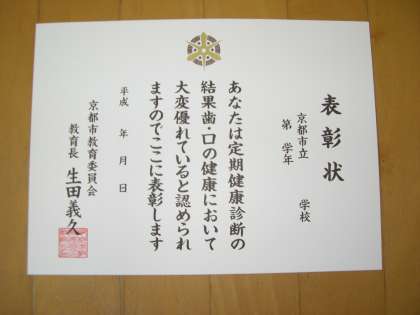 表彰状
京都市立　　　学校
第　学年
あなたは定期健康診断の
結果歯・口の健康において
大変優れていると認められ
ますのでここに表彰します
平成　年　月　日
京都市教育委員会
教育長　生田義久